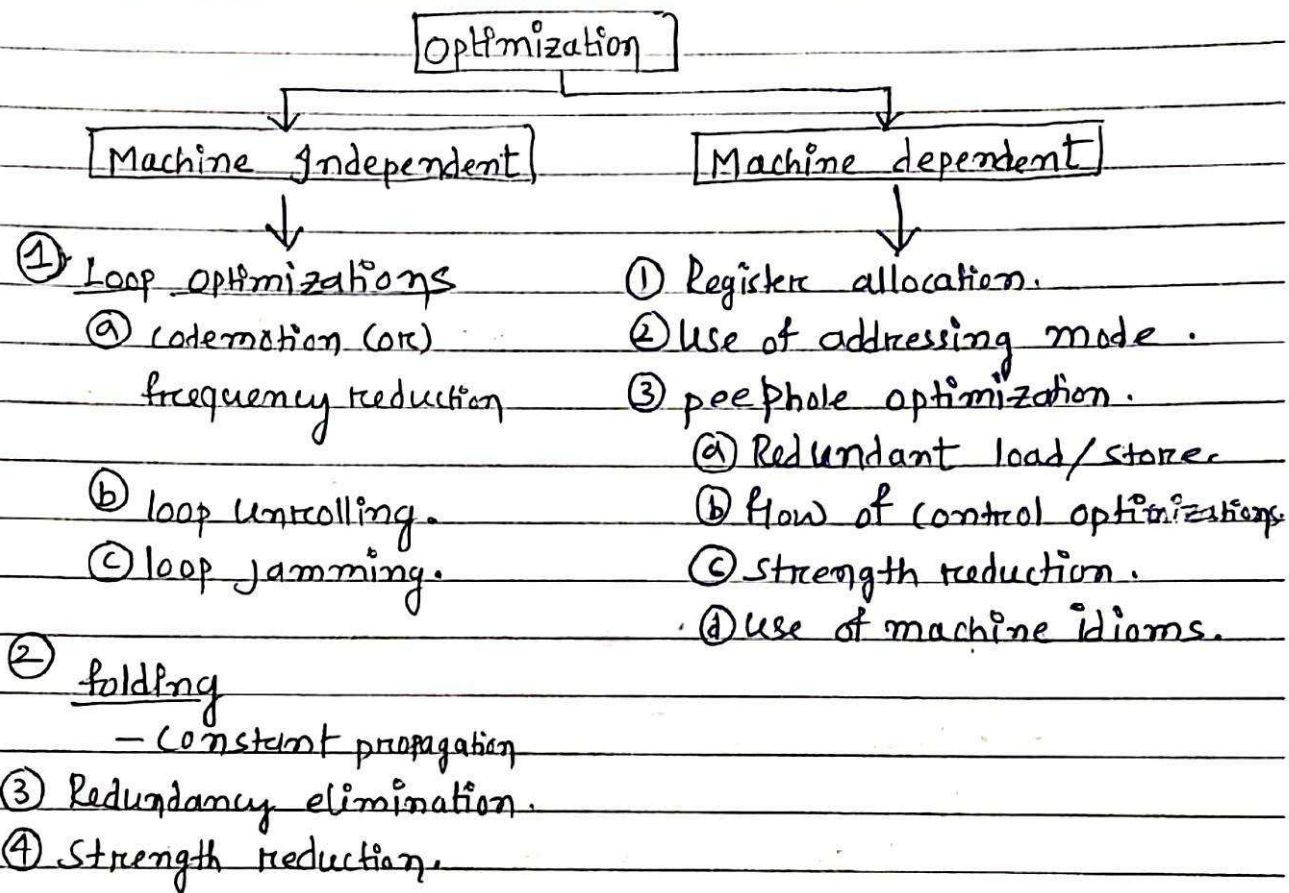 Optimization
Machine Independent
Machine dependent
① Loop optimizations
ⓐ codemotion (or)
frequency reduction
ⓑ loop unrolling.
ⓒ loop jamming.
② folding
– Constant propagation
③ Redundancy elimination.
④ Strength reduction.
① Register allocation.
② Use of addressing mode.
③ peephole optimization.
ⓐ Redundant load/store
ⓑ flow of control optimizations.
ⓒ Strength reduction.
ⓓ use of machine idioms.